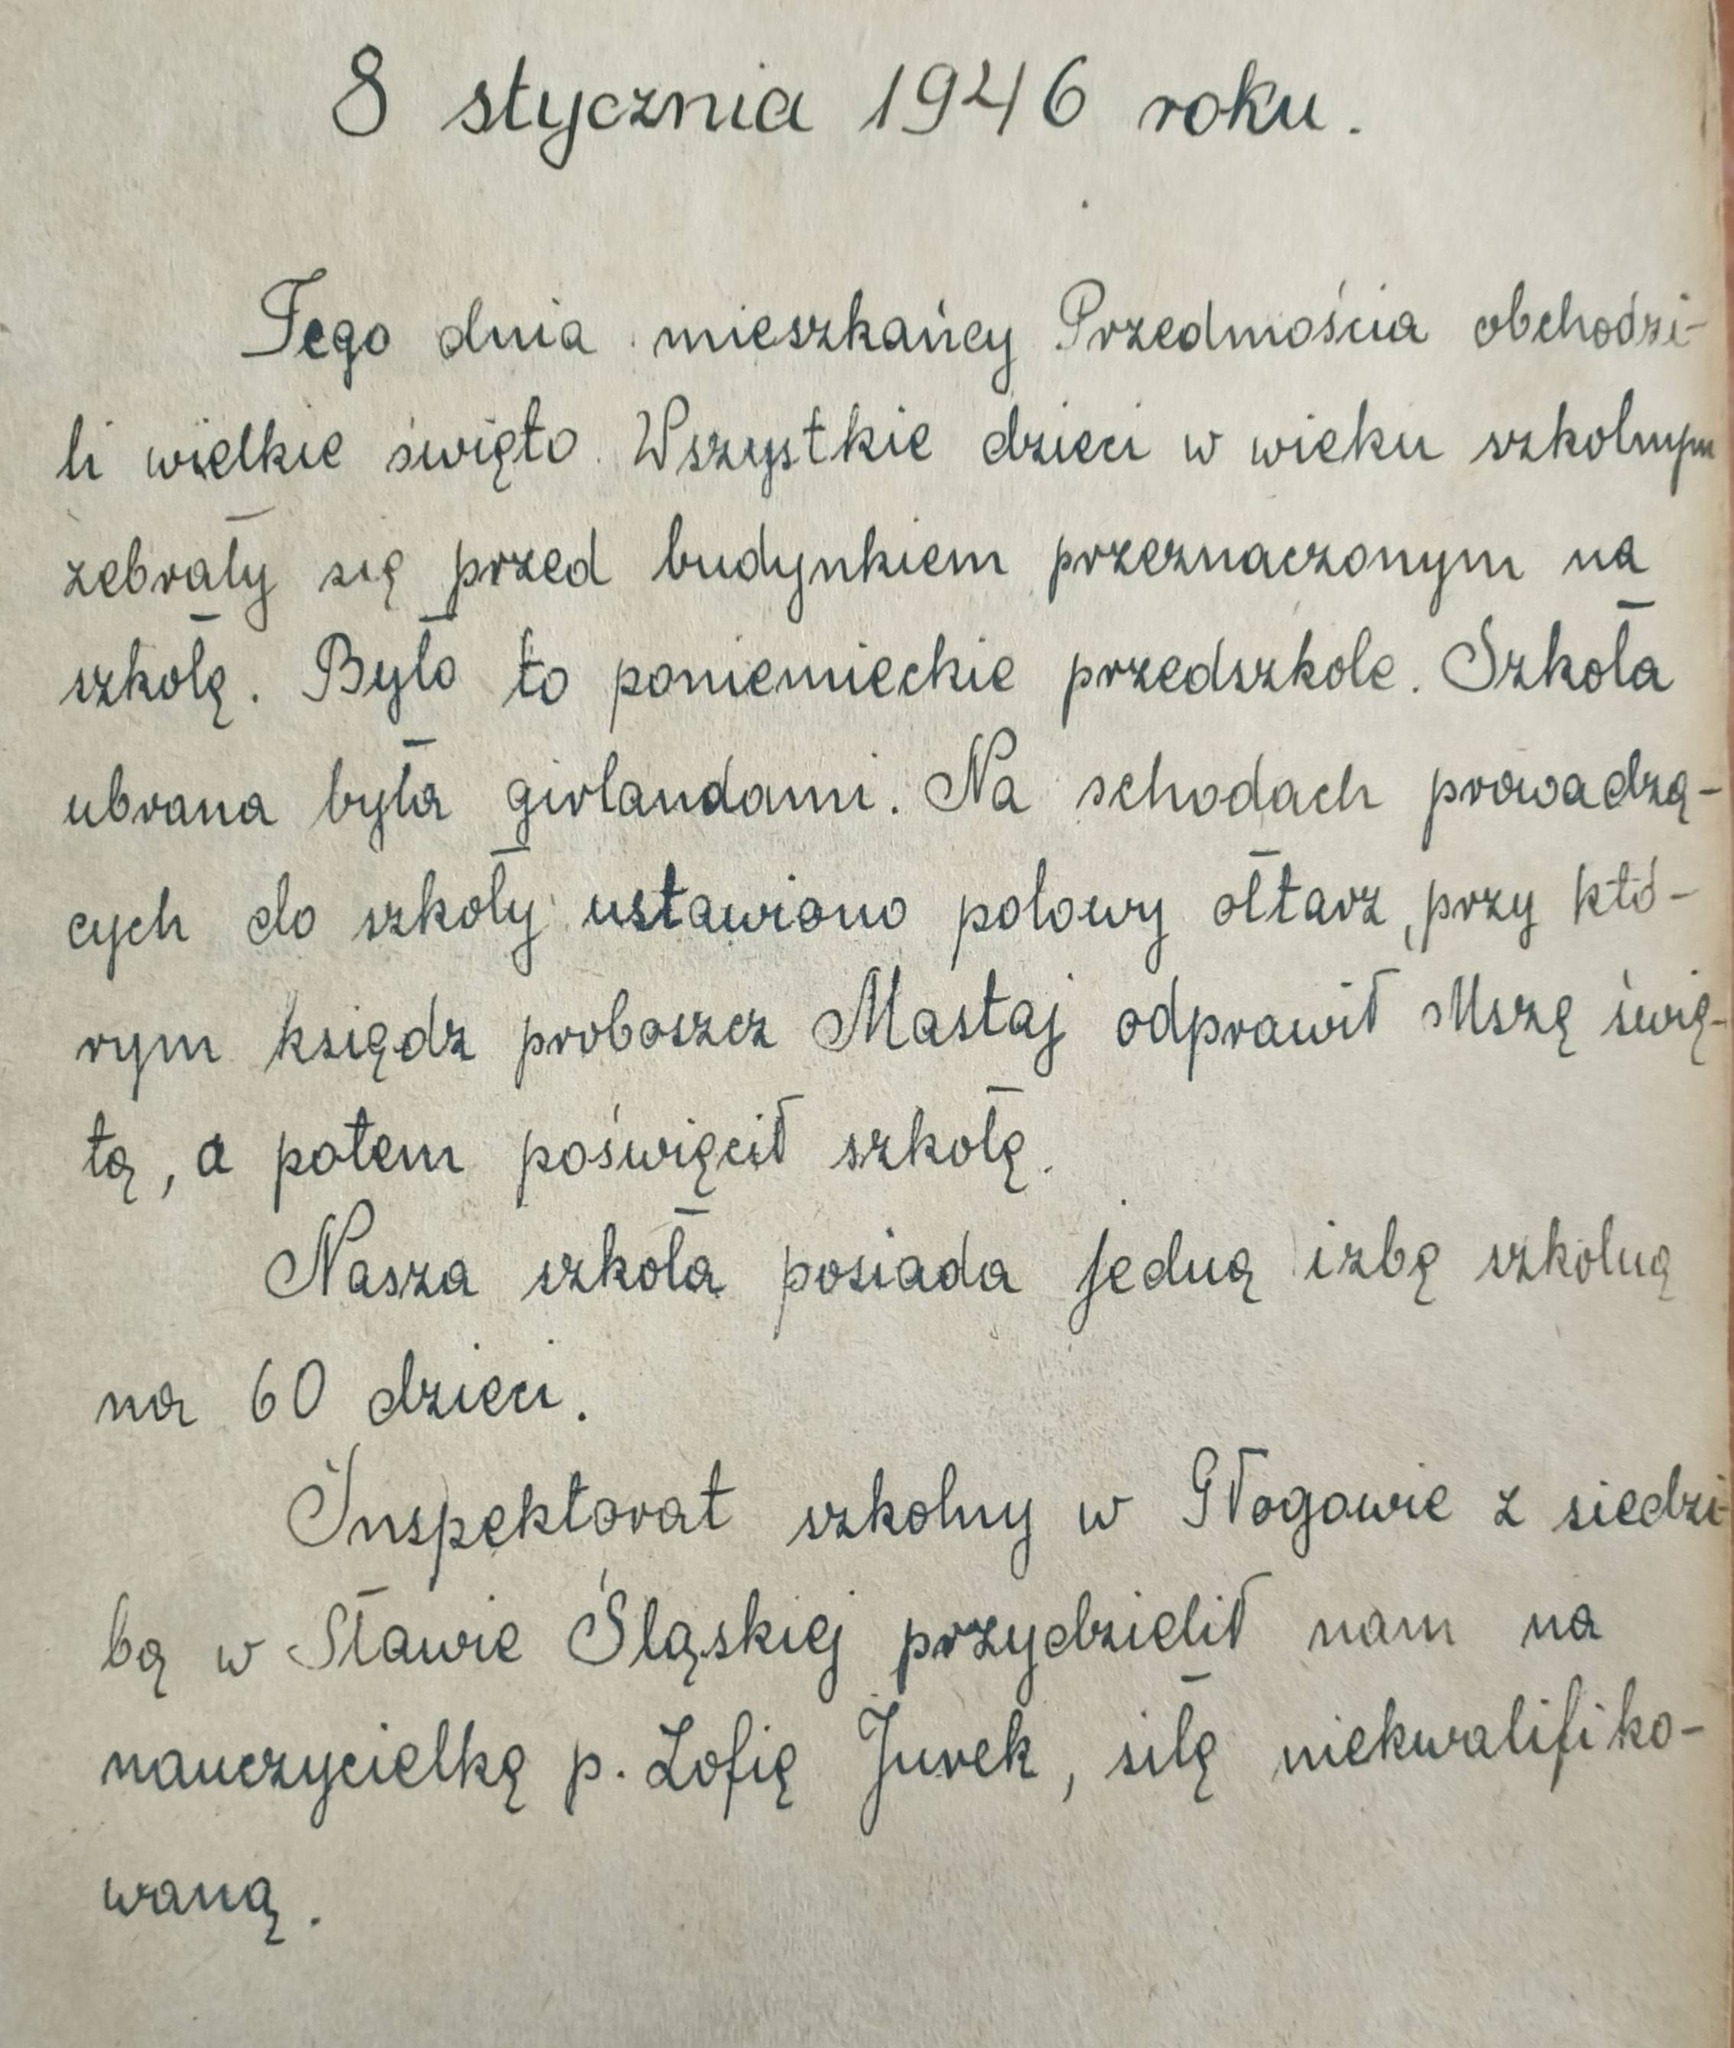 8 stycznia 1946 roku.
Tego dnia mieszkańcy Przedmościa obchodzi-
li wielkie święto. Wszystkie dzieci w wieku szkolnym
zebrały się przed budynkiem przeznaczonym na
szkołę. Było to poniemieckie przedszkole. Szkoła
ubrana była girlandami. Na schodach prowadzą-
cych do szkoły ustawiono polowy ołtarz, przy któ-
rym ksiądz proboszcz Mastaj odprawił Mszę świę-
tą, a potem poświęcił szkołę.
Nasza szkoła posiada jedną izbę szkolną
na 60 dzieci.
Inspektorat szkolny w Głogowie z siedzi-
bą w Sławie Śląskiej przydzielił nam na
nauczycielkę p. Zofię Jurek, siłę niekwalifiko-
waną.